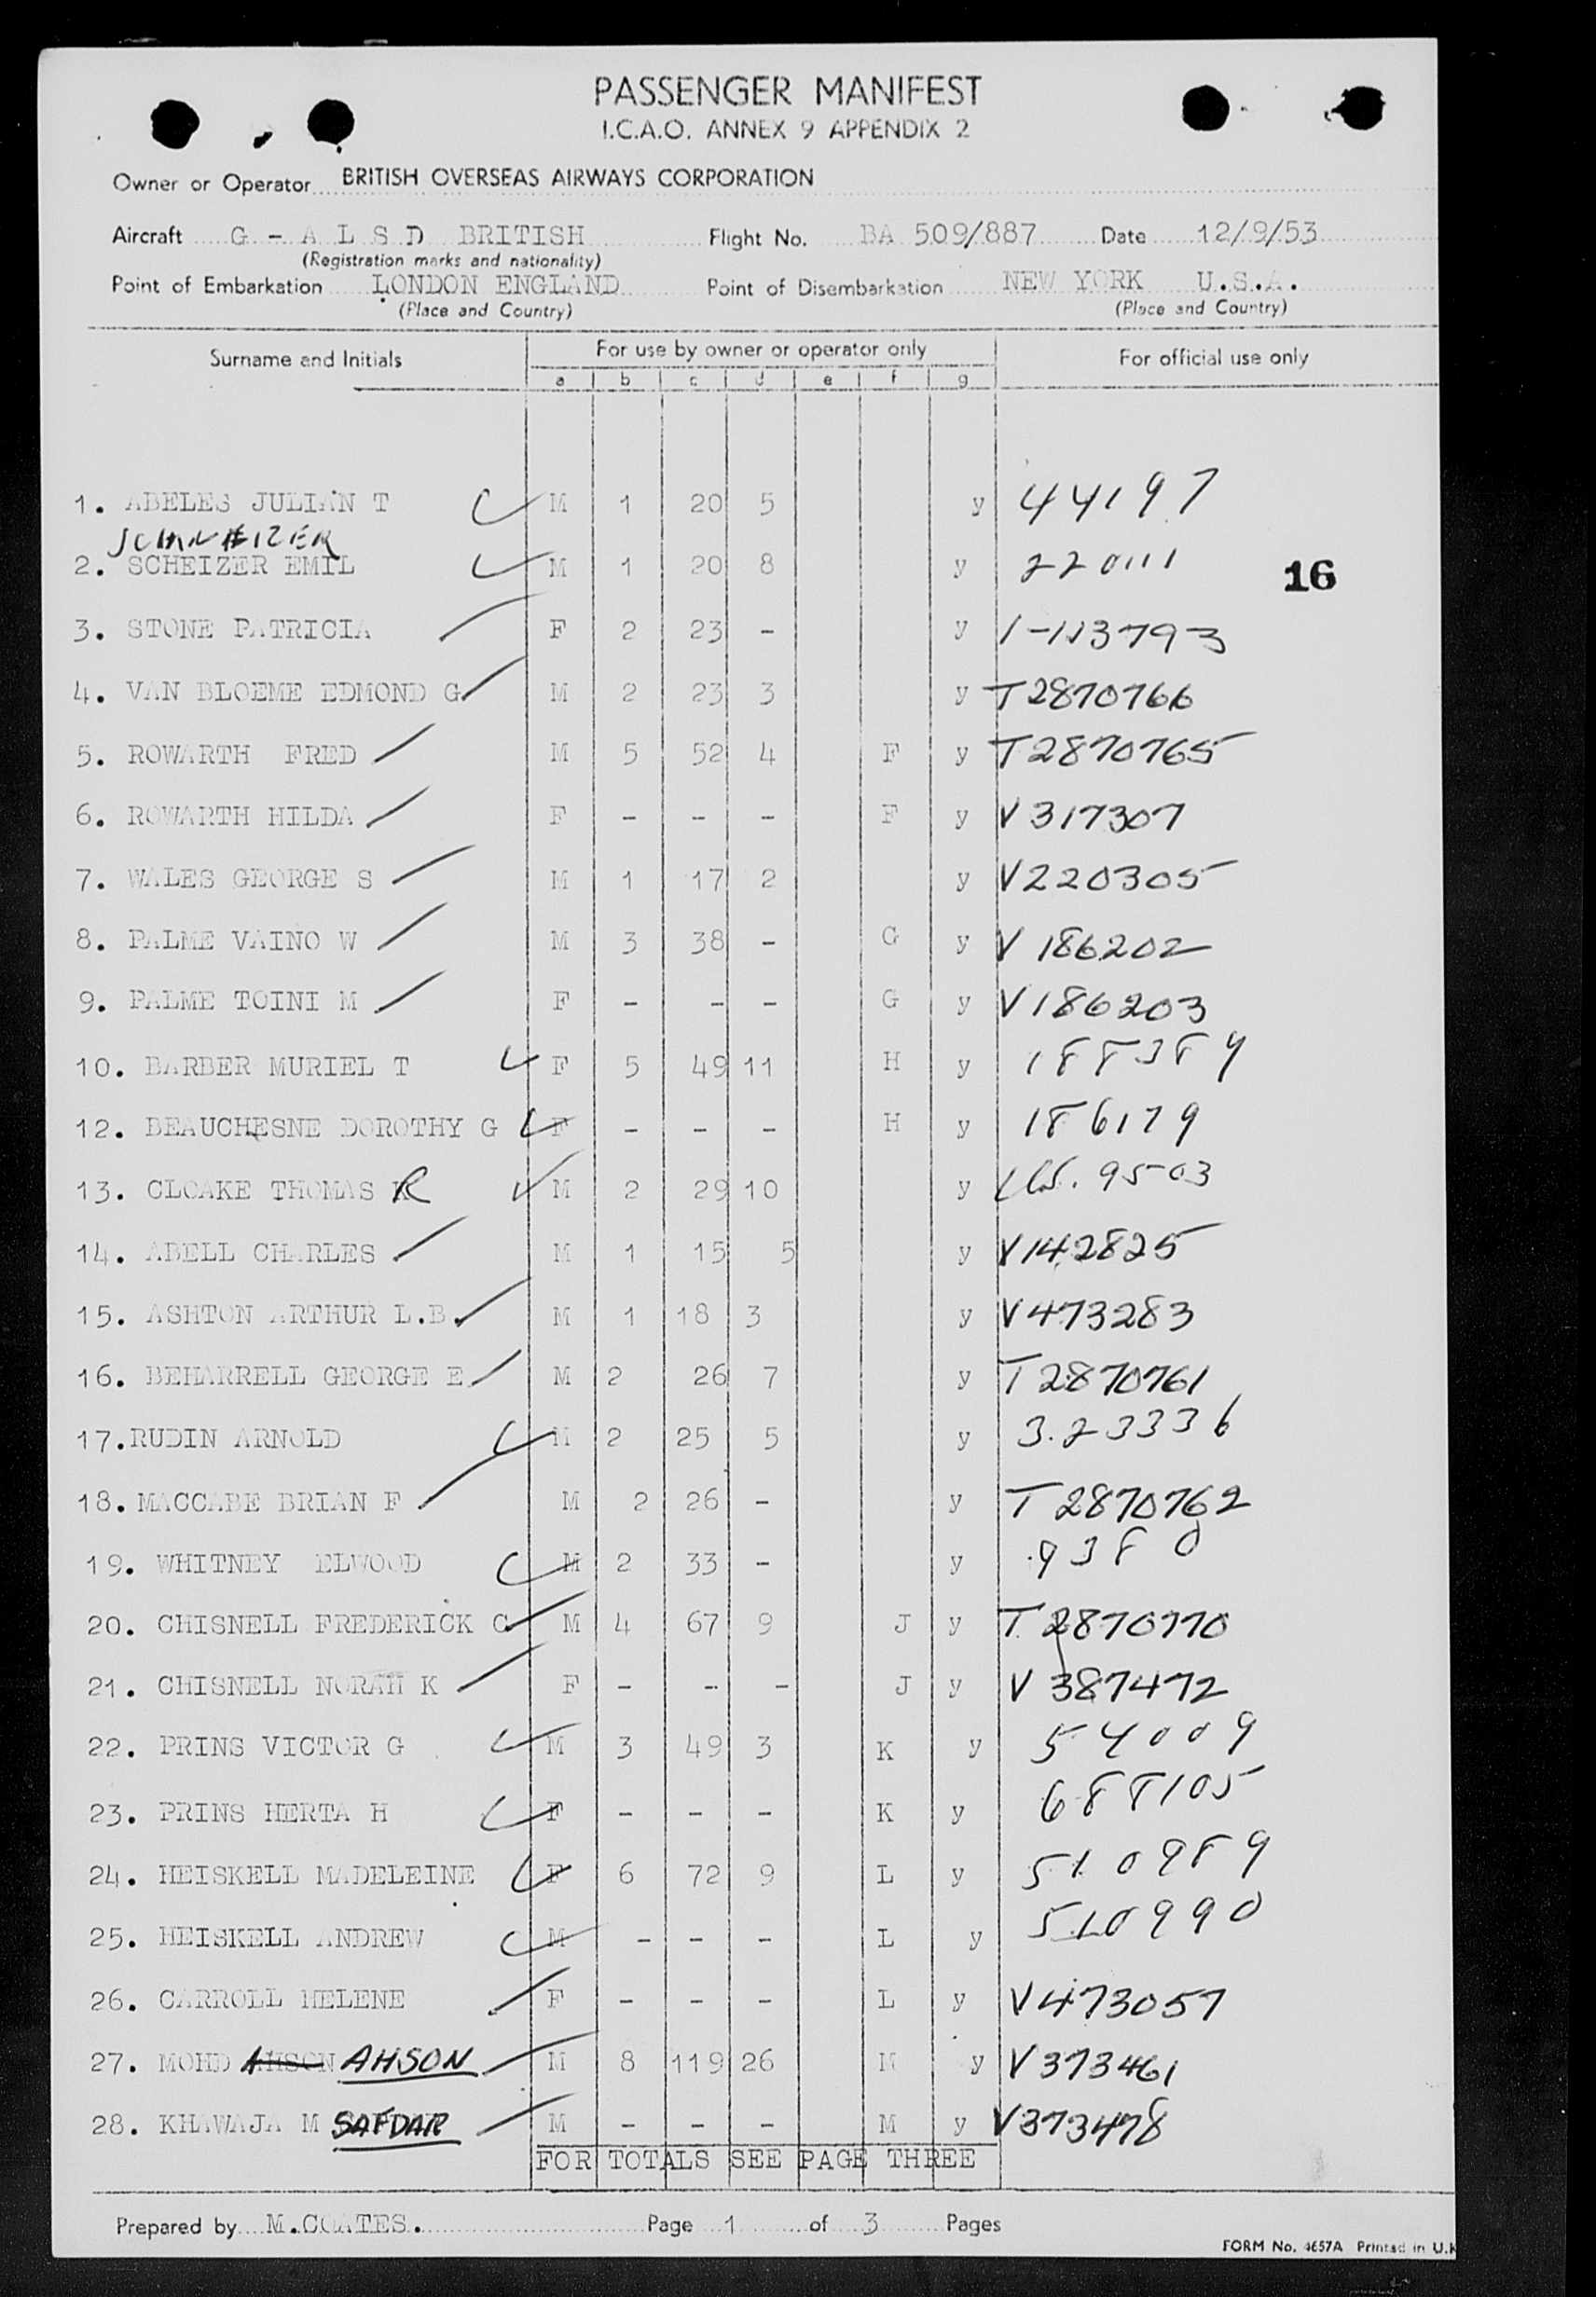 PASSENGER MANIFEST
I.C.A.O. ANNEX 9 APPENDIX 2
Owner or Operator BRITISH OVERSEAS AIRWAYS CORPORATION
Aircraft G - A L S D BRITISH Flight No. BA 509/887 Date 12/9/53
(Registration marks and nationality)
Point of Embarkation LONDON ENGLAND Point of Disembarkation NEW YORK U.S.A.
(Place and Country) (Place and Country)
Surname and Initials For use by owner or operator only For official use only
a b c d e f g
1. ABELES JULIAN T M 1 20 5 y 44197
2. SCHEIZER EMIL M 1 20 8 y 220111
16
3. STONE PATRICIA F 2 23 - y
4. VAN BLOEME EDMOND G M 2 23 3 y T2870766
5. ROWARTH FRED M 5 52 4 F y T2870765
6. ROWARTH HILDA F - - - F y V317307
7. WALES GEORGE S M 1 17 2 y V220305
8. PALME VAINO W M 3 38 - G y V 186202
9. PALME TOINI M F - - - G y V186203
10. BARBER MURIEL T F 5 49 11 H y 188389
12. BEAUCHESNE DOROTHY G F - - - H y 186179
13. CLOAKE THOMAS R M 2 29 10 y 9503
14. ABELL CHARLES M 1 15 5 y V142825
15. ASHTON ARTHUR L.B. M 1 18 3 y V473283
16. BEHARRELL GEORGE E M 2 26 7 y T2870761
17.RUDIN ARNOLD M 2 25 5 y 3.23336
18. MACCABE BRIAN F M 2 26 - y T2870762
19. WHITNEY ELWOOD M 2 33 - y 9380
20. CHISNELL FREDERICK C M 4 67 9 J y T 2870770
21. CHISNELL NORAH K F - - - J y V 387472
22. PRINS VICTOR G M 3 49 3 K y 54009
23. PRINS HERTA H F - - - K y 688105
24. HEISKELL MADELEINE F 6 72 9 L y 510989
25. HEISKELL ANDREW M - - - L y 510990
26. CARROLL HELENE F - - - L y V473057
27. MOHD AHSON AHSON M 8 119 26 M y V373461
28. KHAWAJA M SAFDAR M - - - M y V373478
FOR TOTALS SEE PAGE THREE
Prepared by M.COATES. Page 1 of 3 Pages
FORM No. 4657A Printed in U.K